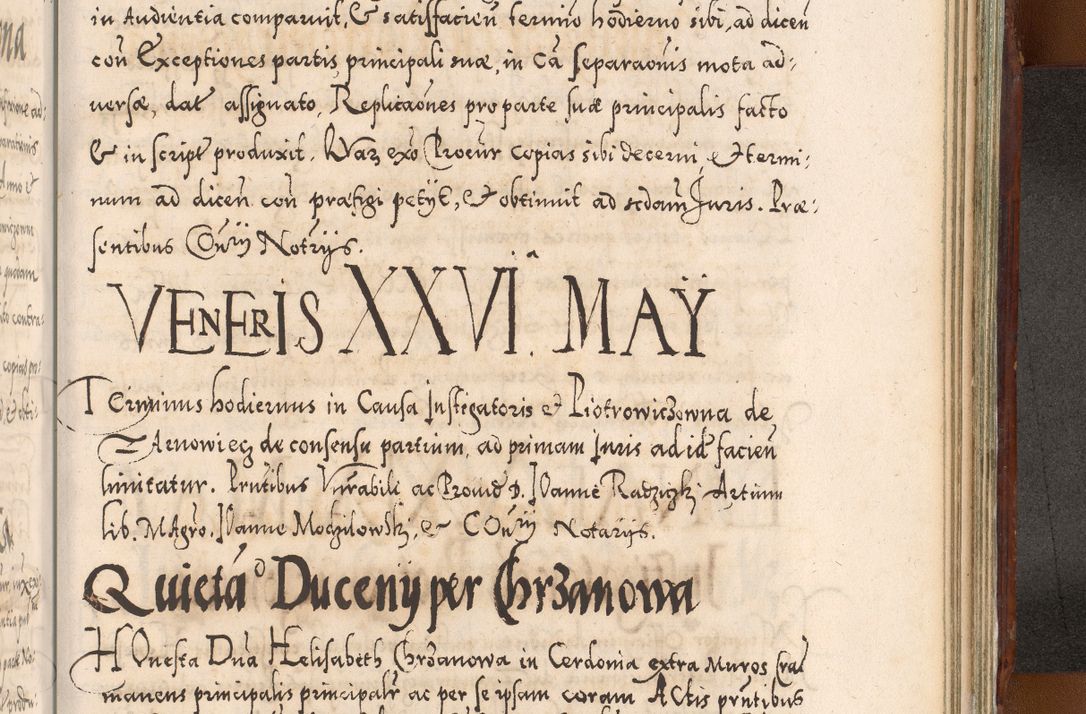 in Audientia comparuit, & satisfacień termino hodierno sibi, ad dicen
coñ Exceptiones partis principali suæ, in Cã separaoñis mota ad-
versæ, dat assignato, Replicaoñes pro parte suæ principalis facto
& in script produxit. exõ Procur copias sibi decerni, et termi-
num ad diceń coñ præfigi petÿt, & obtinuit ad scdam Juris. Præ-
sentibus Notrijs.
VENERIS XXVIᴬ. MAŸ
Terminus hodiernus in Causa Instigatoris et Piotrowiczowna de
Tarnowiecz de consensu partium, ad primam Juris ad id facień
limitatur. Pñtibus Vñrabili ac Provid D. Joanne Radzicki Artium
lib. Mãgro. Joanne Modzilowski, & Notarijs.
Quietãᵒ Ducenÿ per Chrzanowa
Honesta Dña Helisabeth Chrzanowa in Cerdonia extra Muros Cra
manens principalis principalr ac per se ipsam coram Actis pñtibus